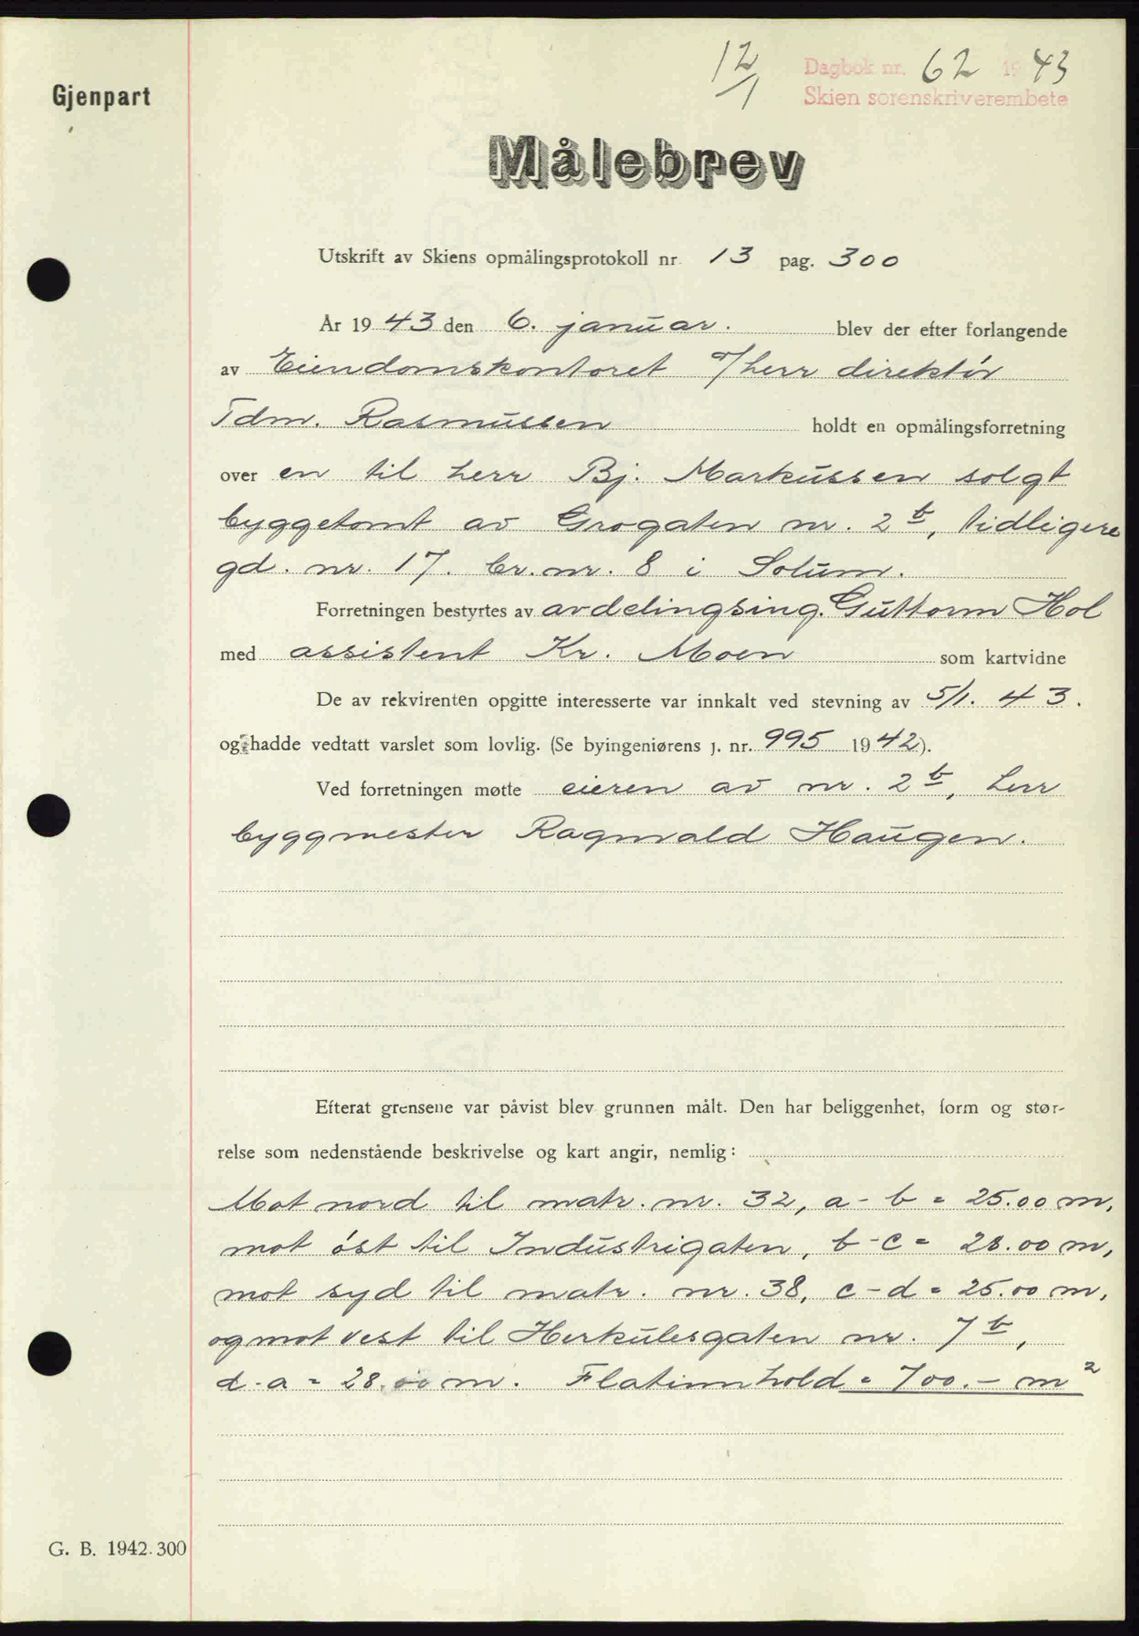 12/1
Dagbok nr. 62 1943
Skien sorenskriverembete
Gjenpart
Målebrev
Utskrift av Skiens opmålingsprotokoll nr. 13 pag. 300
År 1943 den 6. januar. blev der efter forlangende
av Eiendomskontoret v/ herr direktör
Tdm. Rasmussen holdt en opmålingsforretning
over en til herr Bj. Markussen solgt
byggetomt av Grogaten nr. 2b, tidligere
gd. nr. 17. br. nr. 8 i Solum.
Forretningen bestyrtes av avdelingsing. Guttorm Hol
med assistent Kr. Moen som kartvidne
De av rekvirenten opgitte interesserte var innkalt ved stevning av 5/1. 43.
og hadde vedtatt varslet som lovlig. (Se byingeniørens j. nr. 995 1942).
Ved forretningen møtte eieren av nr. 2b, herr
byggmester Ragnvald Haugen.
Efterat grensene var påvist blev grunnen målt. Den har beliggenhet, form og stør-
relse som nedenstående beskrivelse og kart angir, nemlig:
Mot nord til matr. nr. 32, a - b = 25.00 m,
mot öst til Industrigaten, b - c = 28.00 m,
mot syd til matr. nr. 38, c - d = 25.00 m,
og mot vest til Herkulesgaten nr. 7b,
d - a = 28.00 m. Flatinnhold = 700.- m²
G. B. 1942. 300